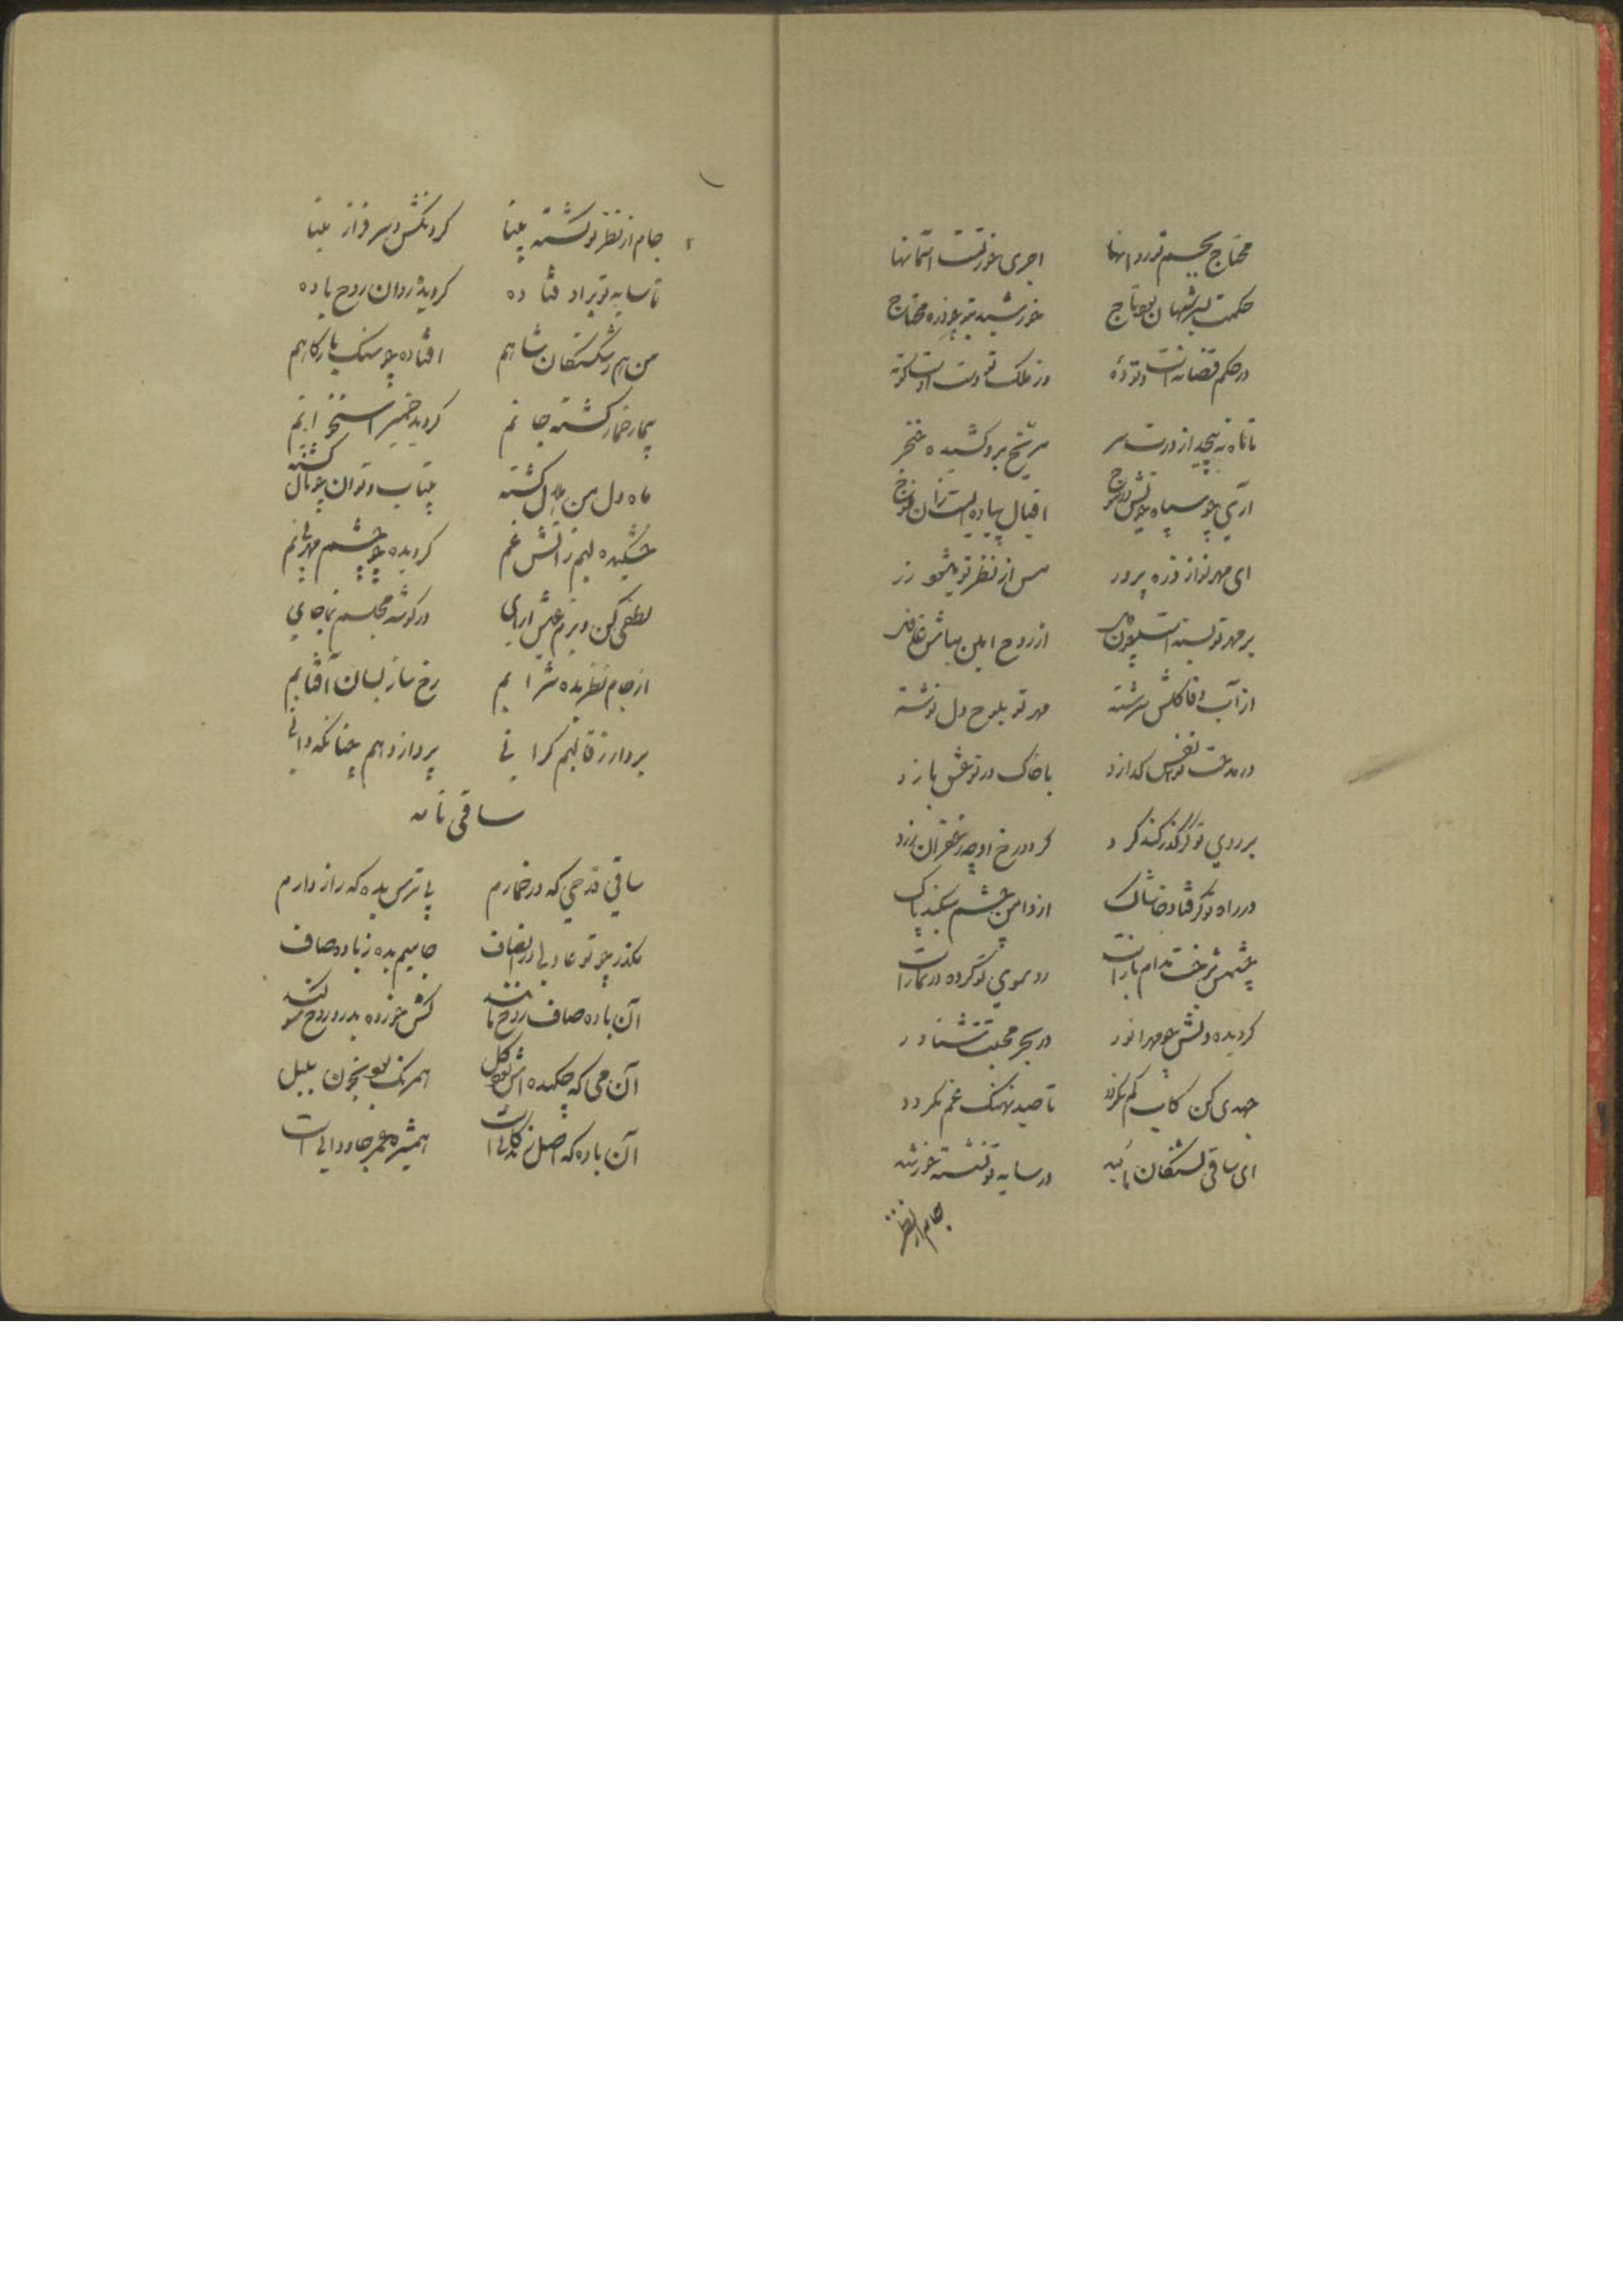 محتاج بجسم تو روانها اجری خور تست آسمانها
حکمت بسر شهان بود تاج خورشید بتو چو ذره محتاج
در حکم قضا نه است و نو ده وز ملک تو دست اوست کوته
تا ناه نه پیچد از درت سر مریخ برو کشیده خنجر
آری چو سپاه اقبال پیاده ایست زان فوج
ای مهر نواز ذره پرور مس از نظر تو میشود زر
بر مهر تو بسته است از روح امین مباش غافل
از آب وفا گلش سرشته مهر تو بلوح دل نوشته
در مدحت تو نفس کدازد با خاک در تو عشق بازد
بر روی تو کر گذر کند کرد کردد رخ او چو زعفران زرد
در راه تو کر فتاد خاشاک از دامن چشم میکند پاک
چشمش برخت مدام باز است رو سوی تو کرده در نماز است
کردیده دلش چو مهر انور در بحر محبتت شناور
جهدی کن کاب کم نکردد تا صید نهنک غم نکردد
ای ساقی تشنکان در سایه تو نشسته خورشید
جام از نظر
جام از نظر تو کشته مینا کردنکش و سرفراز مینا
تا سایه تو برو فتاده کردیده روان روح باده
من هم ز شکستکان شاهم افتاده چو سنک بارکاهم
بیمار خمار کشته جانم کردید خمیر استخوانم
ماه دل من هلال کشته بیتاب و توان چو نال کشته
خشکیده لبم ز آتش غم کردیده چو چشم مهر بی نم
لطفی کن و بزم عیش آرای در کوشه مجلسم بنما جای
از جام نظر بده شرابم رخ ساز بسان آفتابم
بردار ز قالبم کرانی پرداز دلم چنانکه دانی
ساقی نامه
ساقی قدحی که در خمارم بی ترس بده که راز دارم
مکذر چو تو عادلی ز انصاف جامیم بده ز باده صاف
آن باده صاف روح مانند کش خورده بدرد روح سوکند
آن می که چکیده اش بود کل همرنک بود بخون بلبل
آن باده که اصل زندکانی است همشیره عمر جاودانی است